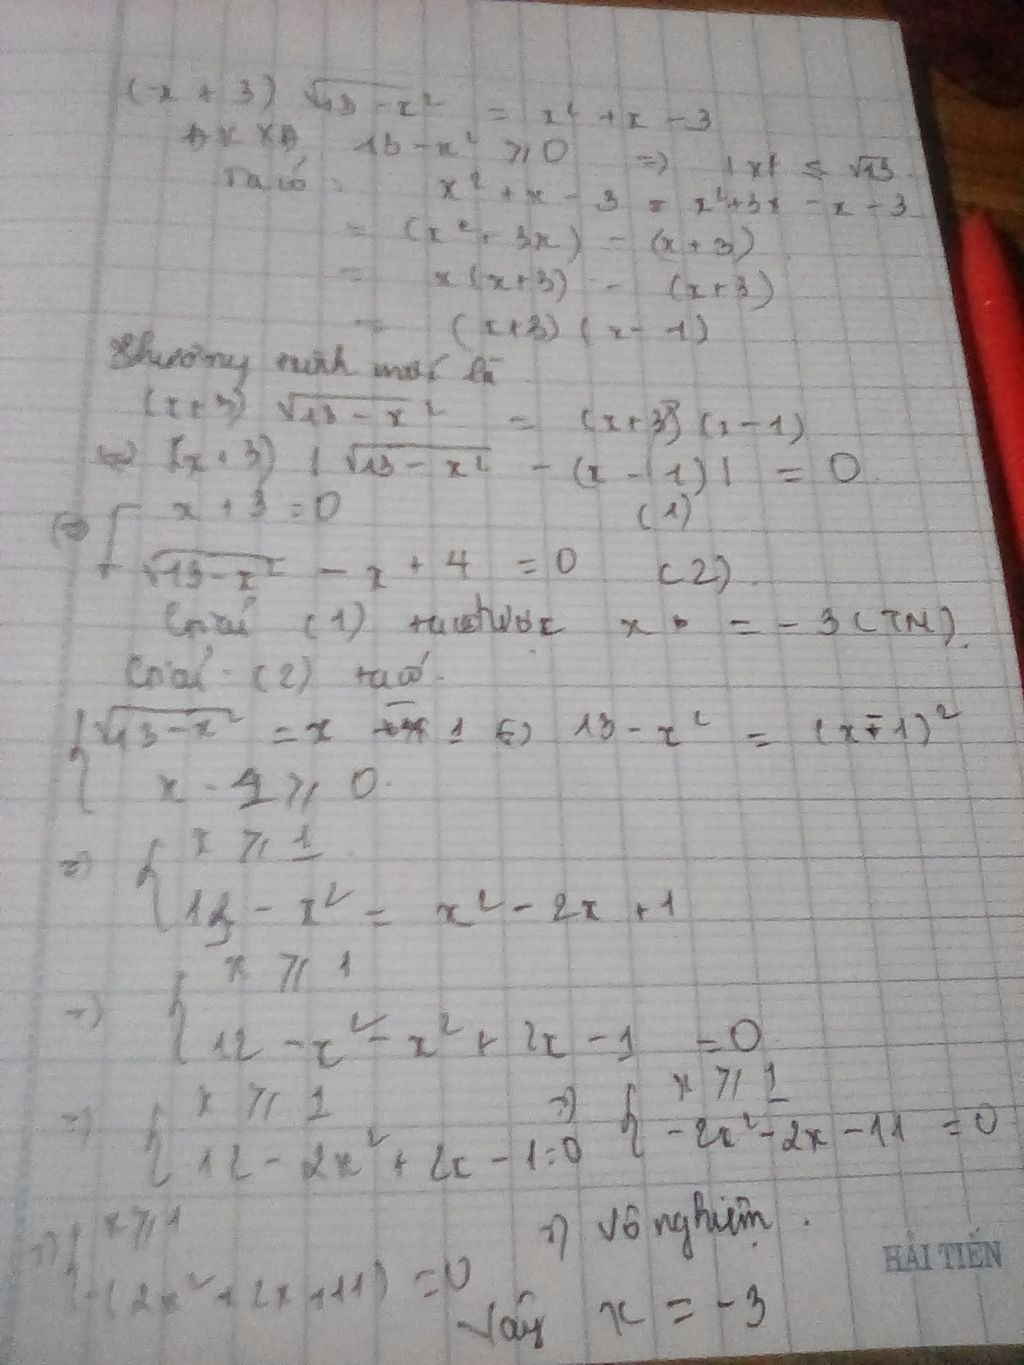 (x + 3) √13 - x² = x² + x - 3
ĐKXĐ 13 - x² ⩾ 0 => |x| ≤ √13
Ta có : x² + x - 3 = x² + 3x - x - 3
= (x² + 3x) - (x + 3)
= x (x + 3) - (x + 3)
= (x + 3) (x - 1)
Phương trình mới là
(x + 3) √13 - x² = (x + 3) (x - 1)
<=> (x + 3) | √13 - x² - (x - 1) | = 0
<=> [ x + 3 = 0 (1)
√13 - x² - x + 4 = 0 (2).
Giải (1) ta được x = - 3 (TN).
Giải (2) ta có.
{ √13 - x² = x - 1 <=> 13 - x² = (x - 1)²
x - 1 ⩾ 0.
=> { x ⩾ 1
13 - x² = x² - 2x + 1
=> { x ⩾ 1
12 - x² - x² + 2x - 1 = 0
=> { x ⩾ 1 => { x ⩾ 1
12 - 2x² + 2x - 1 = 0 - 2x² - 2x - 11 = 0
=> { x ⩾ 1 => Vô nghiệm.
- (2x² + 2x + 11) = 0
HẢI TIẾN
Vậy x = - 3